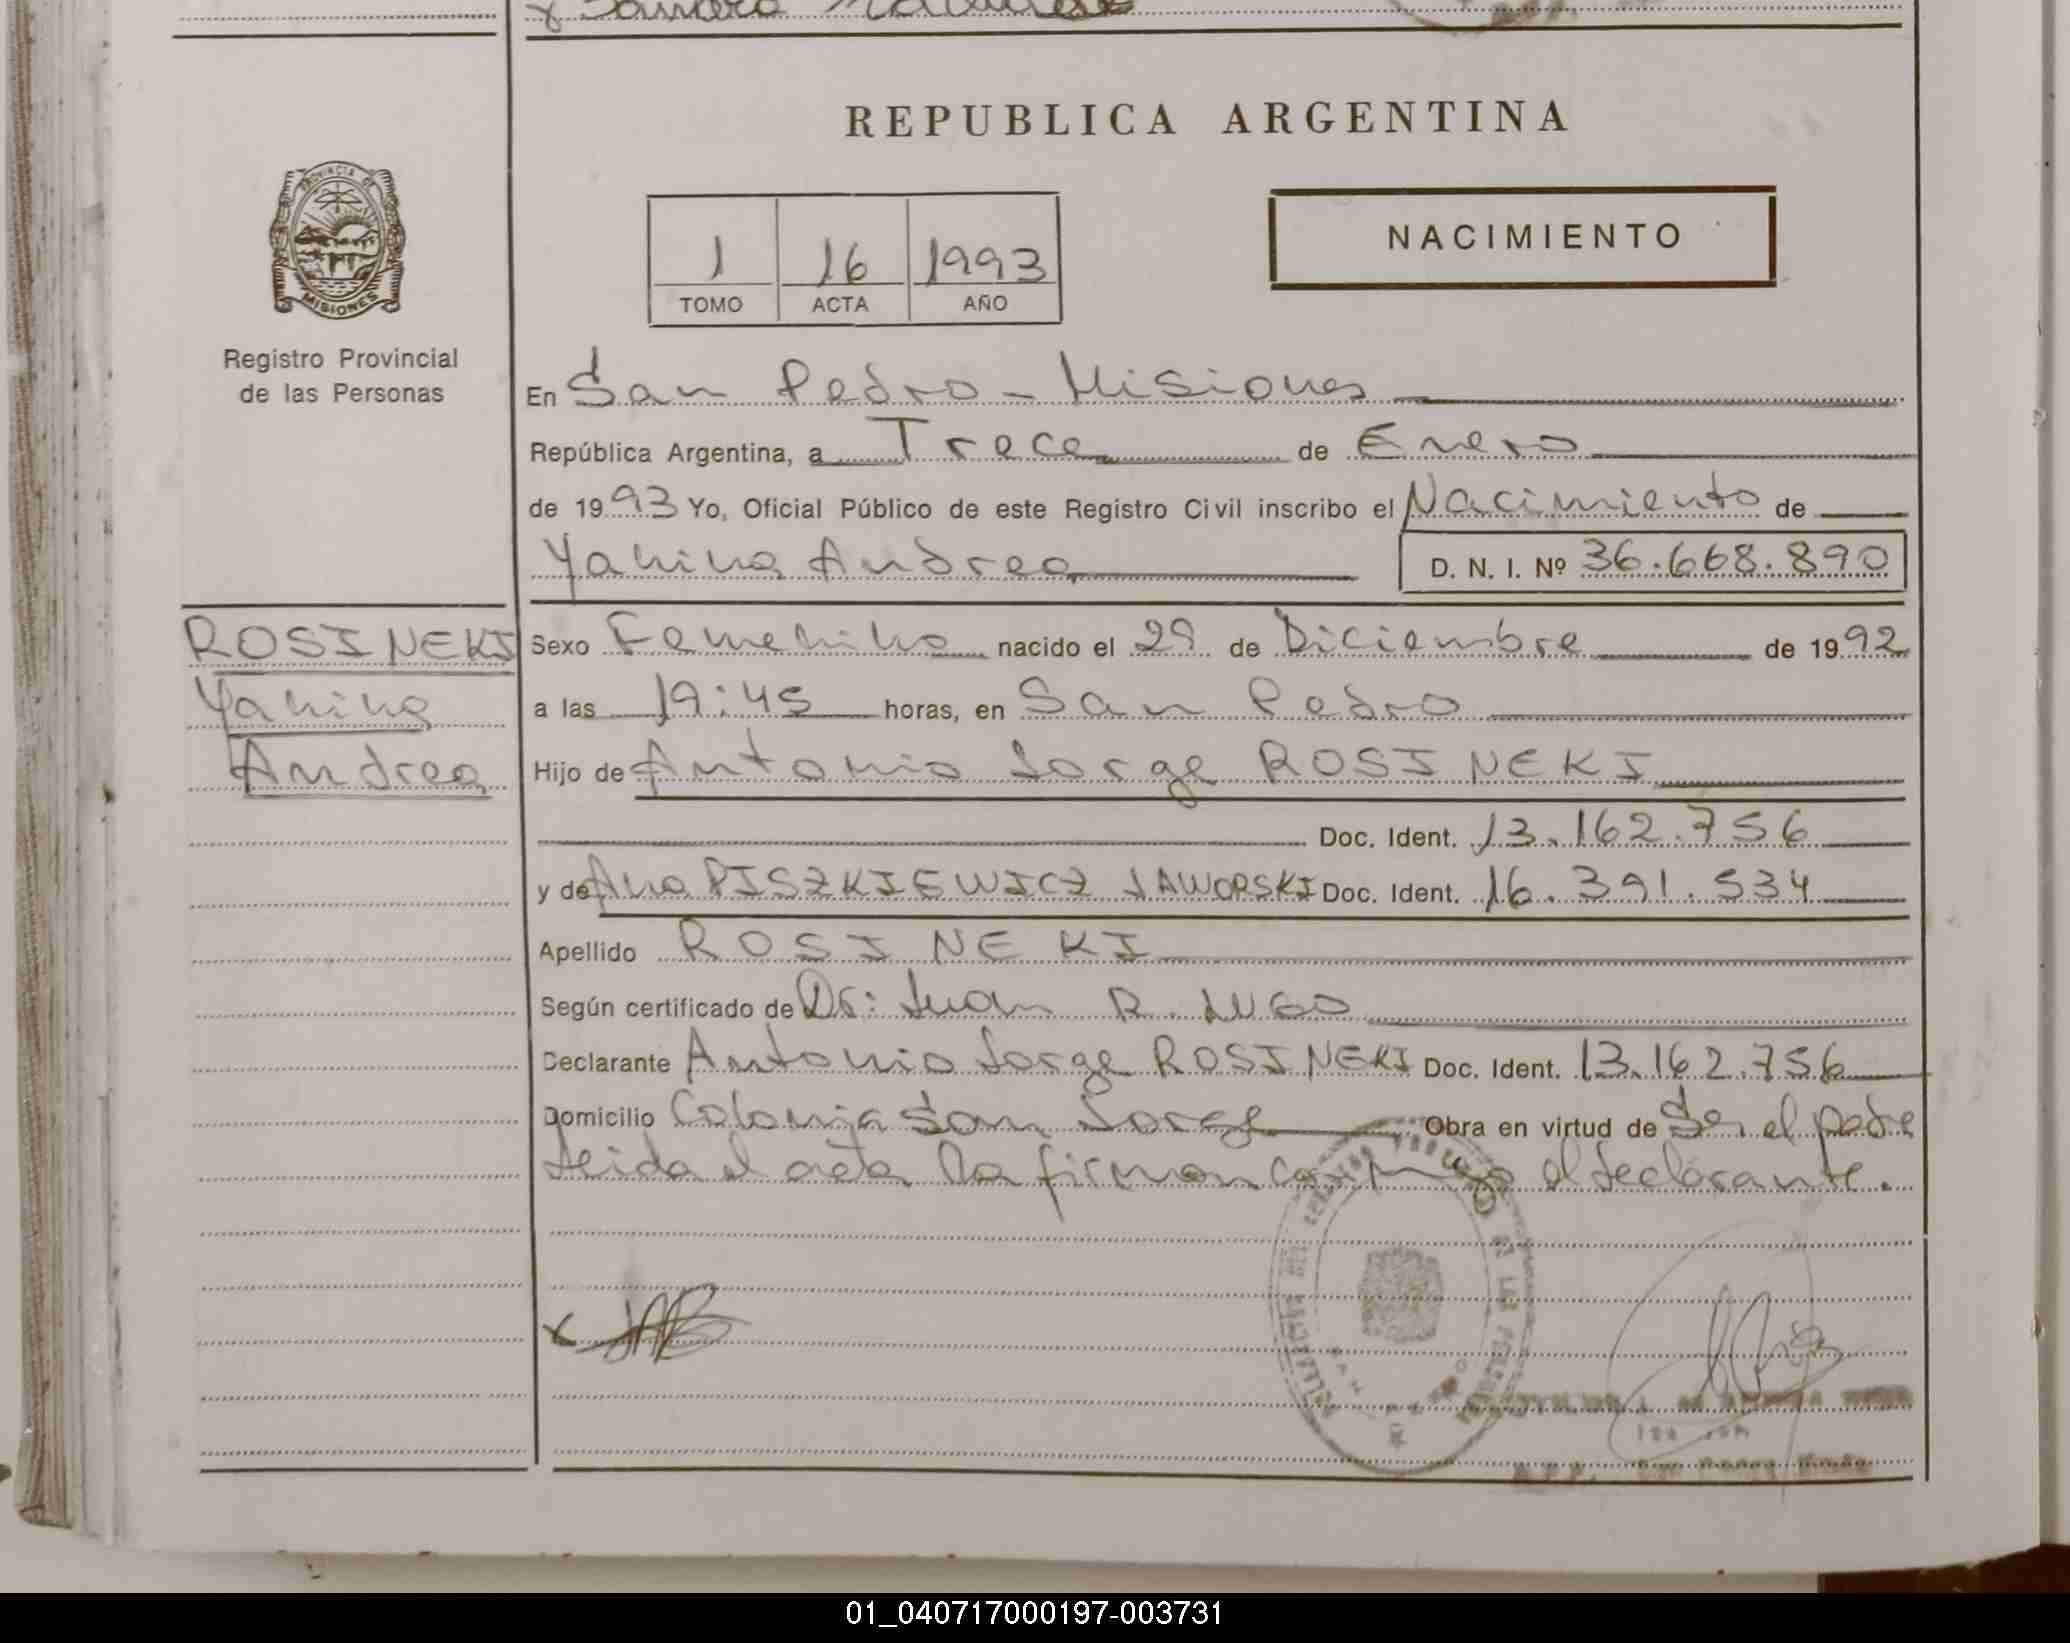 REPUBLICA ARGENTINA
PROVINCIA DE
MISIONES
Registro Provincial
de las Personas
1 16 1993
TOMO ACTA AÑO
NACIMIENTO
En San Pedro - Misiones
República Argentina, a Trece de Enero
de 1993 Yo, Oficial Público de este Registro Civil inscribo el Nacimiento de
Yanina Andrea D. N. I. Nº 36.668.890
ROSINEKI
Yanina
Andrea
Sexo Femenino nacido el 29 de Diciembre de 1992
a las 19:45 horas, en San Pedro
Hijo de Antonio Jorge ROSINEKI
Doc. Ident. 13.162.756
y de Ana PISZKIEWICZ JAWORSKI Doc. Ident. 16.391.534
Apellido ROSINEKI
Según certificado de Dr: Juan R. LUGO
Declarante Antonio Jorge ROSINEKI Doc. Ident. 13.162.756
Domicilio Colonia San Jorge Obra en virtud de Ser el padre
Leida el acta la firman conmigo el declarante.
01_040717000197-003731